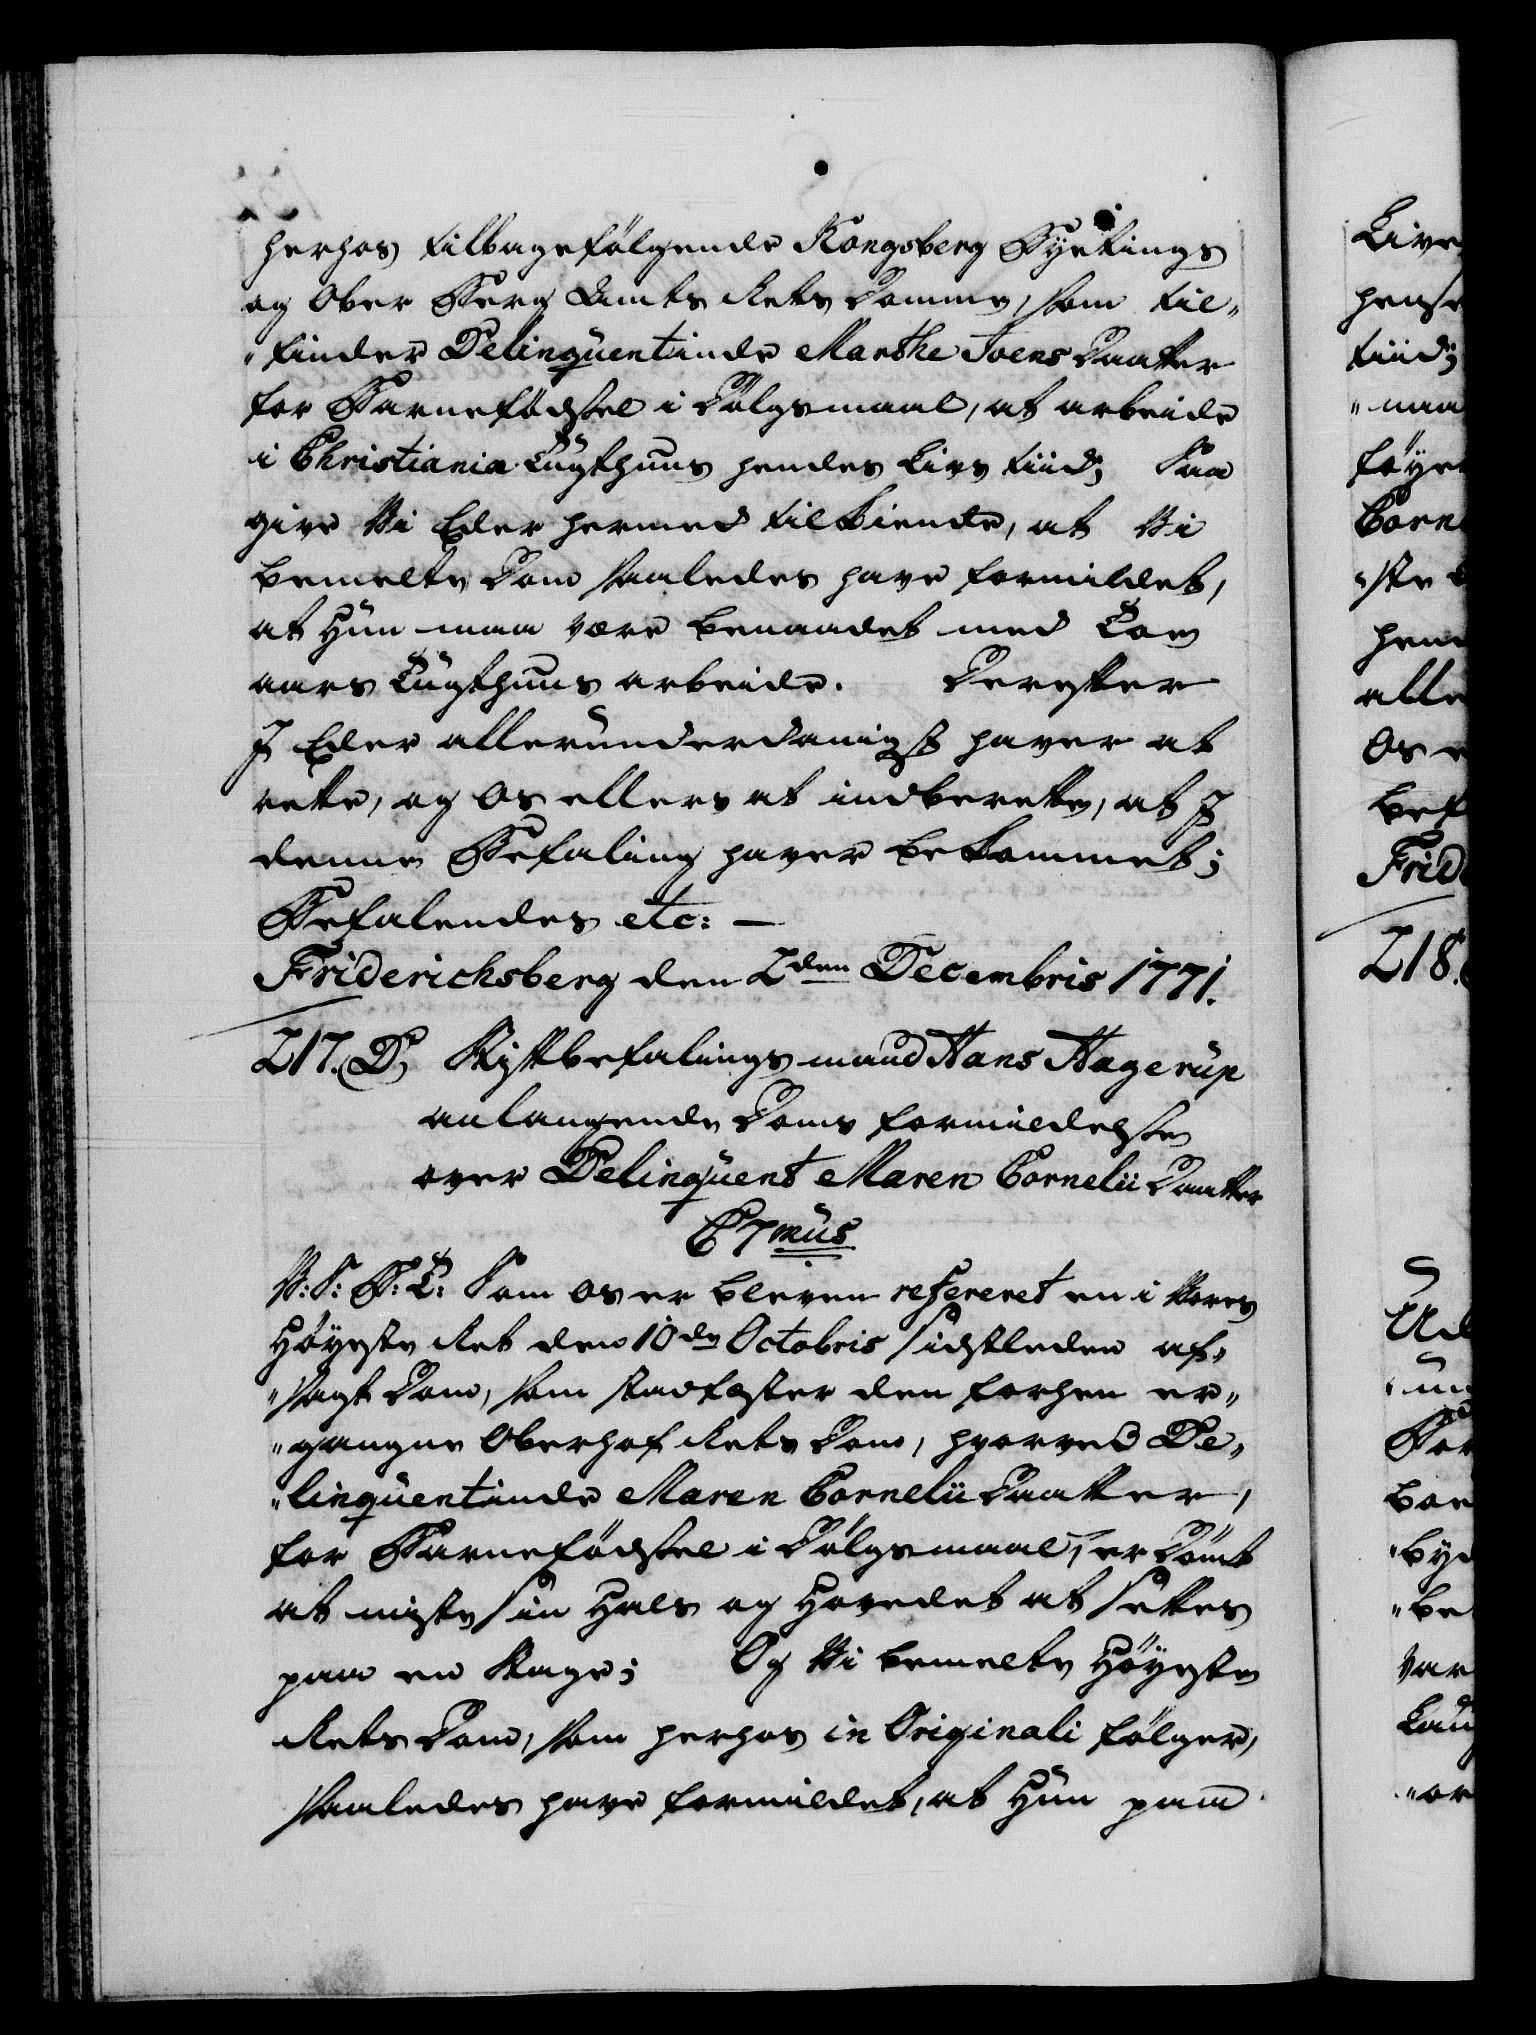 herhos tilbagefölgende Kongsberg Byetings
og Ober Berg Amts Rets Domme, som til„
„finder Delinqventinde Marthe Joens Daatter
for Barnefödsel i Dölgsmaal, at arbeide
i Christiania Tugthuus hendes Livs tiid; Saa
give Vi Eder hermed tilkiende, at Vi
bemelte Dom saaledes have formildet,
at Hun maa være benaadet med Toe
aars Tugthuus arbeide. Derefter
I Eder allerunderdanigst haver at
rette, og Os ellers at indberette, at I
denne Befaling haver bekommet;
Befalendes etc: —
Friderichsberg den 2den Decembris 1771.
217. D, Stiftbefalingsmand Hans Hagerup
anlangende Doms formildelse
over Delinqvent Maren Cornelii Daatter
C7mus
V: S: G: T: Som Os er bleven refereret en i Vores
Höyeste Ret den 10de Octobris sidstleden af„
„sagt Dom, som stadfæster den forhen er„
„gangne Oberhof Rets Dom, hvorved De„
„linqventinde Maren Cornelii Daatter,
for Barnefödsel i Dölgsmaal, er Dömt
at miste sin Hals og Hovedet at settes
paa en Stage; Og Vi bemelte Höyeste
Rets Dom, som herhos in Originali fölger,
saaledes have formildet, at Hun paa
218.